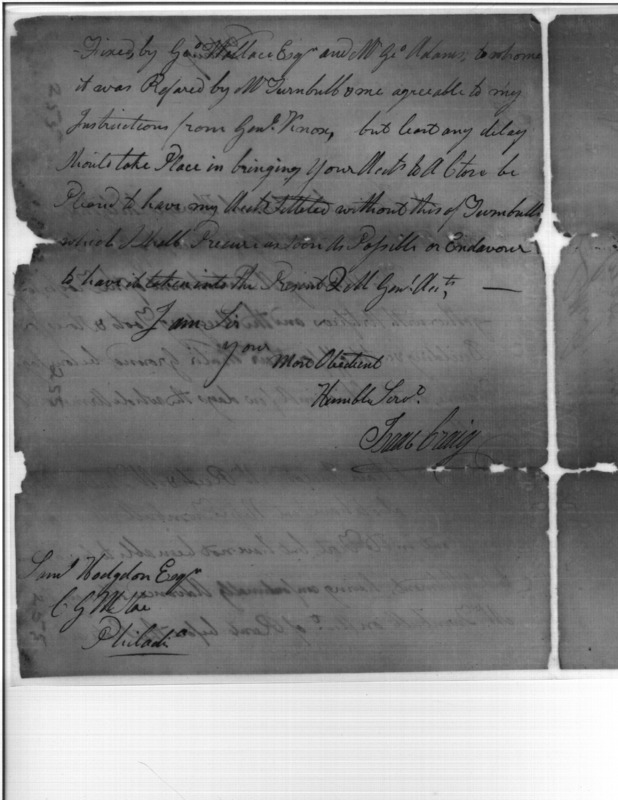 Fixed, by Geo. Wallace Esqr. and Mr Geo Adams, to whome
it was Refared by Mr Turnbull & me agreable to my
Instructions from Genl. Knox, but least any delay
Should take Place in bringing Your Acts. to A Close be
Pleasd to have my Acct. Settled without this of Turnbulls
which I Shall Procure as soon as Possible or Endavour
to have it taken into the Present Acts,
I am Sir
Your
Most Obedient
Humble Servt.
Isaac Craig
Saml Hodgdon Esqr.
Philada